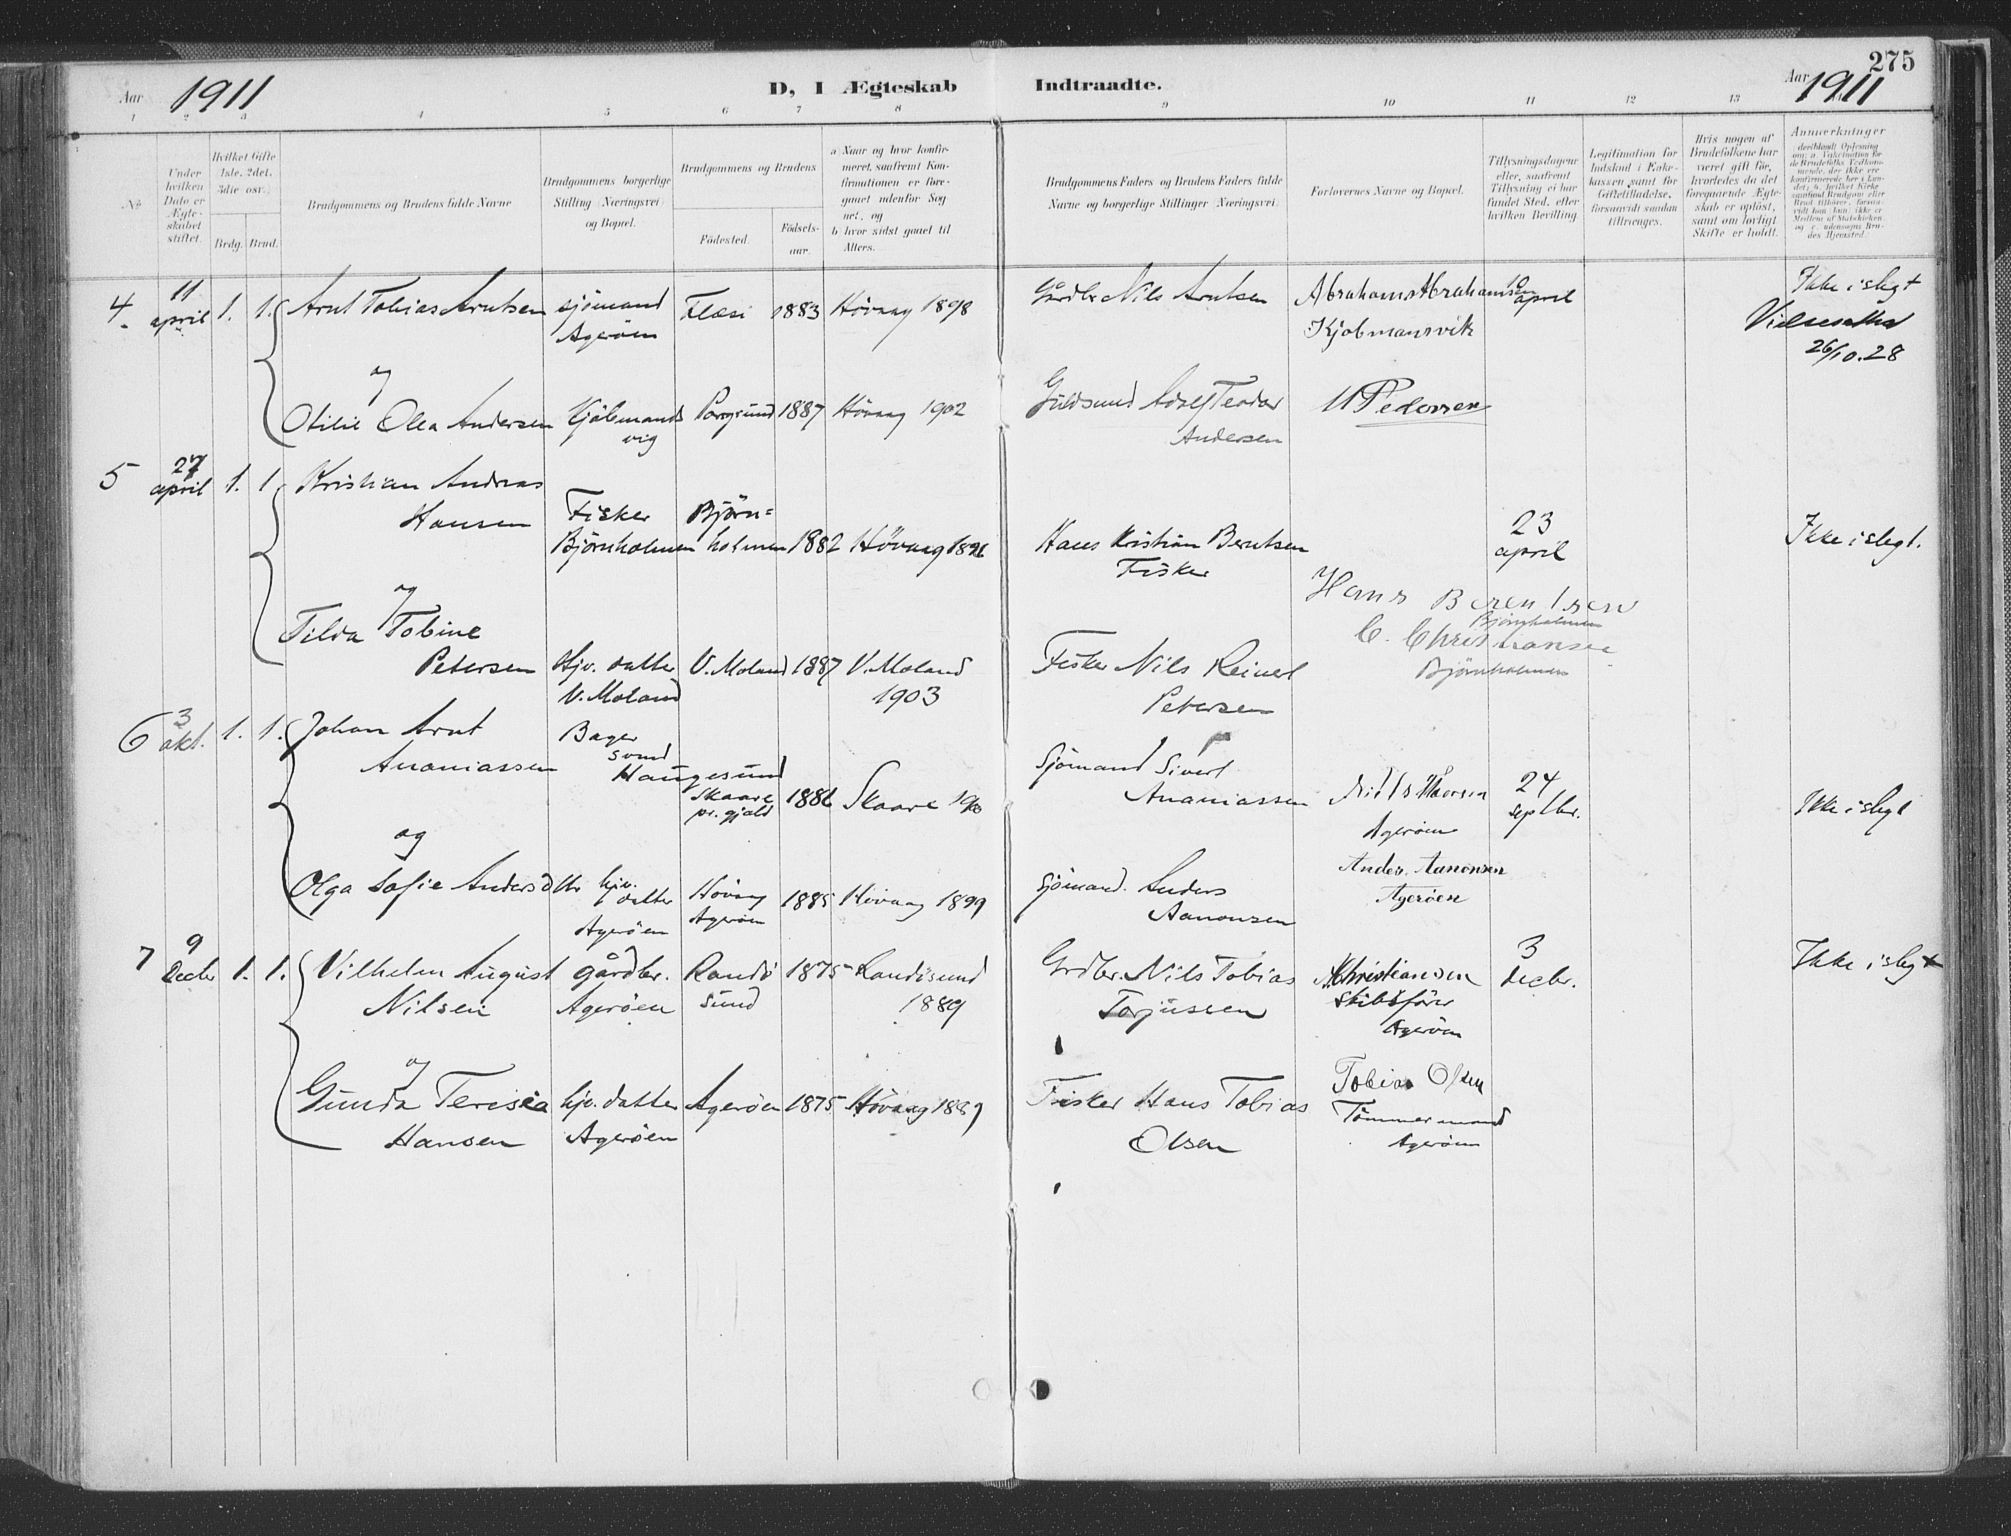 275
Aar 1911
D, I Ægteskab Indtraadte.
Aar 1911
1 2 3 4 5 6 7 8 9 10 11 12 13
No
Under hvilken Dato er Ægteskabet stiftet.
Hvilket Gifte 1ste. 2det. 3die osv.
Brdg. Brud.
Brudgommens og Brudens fulde Navne
Brudgommens borgerlige Stilling (Næringsvei) og Bopæl.
Brudgommens og Brudens
Fødested.
Fødselsaar.
a Naar og hvor konfirmeret, saafremt Konfirmationen er foregaaet udenfor Sognet, og
b hvor sidst gaaet til Alters.
Brudgommens Faders og Brudens Faders fulde Navne og borgerlige Stillinger (Næringsvei).
Forlovernes Navne og Bopæl.
Tillysningsdagene eller, saafremt Tillysning ei har fundet Sted, efter hvilken Bevilling.
Legitimation for Indskud i Enkekassen samt for Giftetilladelse, forsaavidt saadan tiltrænges.
Hvis nogen af Brudefolkene har været gift før, hvorledes da det foregaaende Ægteskab er opløst, samt om lovligt Skifte er holdt.
Anmerkninger
4. 11 april 1. 1. Arnt Tobias Arntsen
sjömand Agerøen
Flæsi 1883 Høvaag 1898
Gårdbr Nils Arntsen
Abraham Abrahamsen
Kjøbmansvik
april
Ikke i slegt
26/10.28
og
Otilie Olea Andersen
Kjöbmandsvig
Porsgrund 1887 Høvaag 1902
Guldsmed Adolf Teodor
Andersen
Pedersen
5 27 april 1. 1. Kristian Andreas
Hansen
Fisker
Björnholmen
Björnholmen 1882 Høvaag 1896
Hans Kristian Berntsen
Fisker
23 april
Ikke i slegt.
Hans Berentsen
Bjørnholmen
C. Christiansen
Bjørnholmen
og
Tilda Tobine
Petersen
Hjv. datter
V. Moland
V. Moland 1887 V. Moland
1903
Fisker Nils Reinert
Petersen
6 3 okt. 1. 1. Johan Arnt
Ananiassen
Bager
svend
Haugesund
Skaare
pr.gjeld
1886 Skaare
Sjömand Sivert
Ananiassen
Agerøen
24 septbr.
Ikke i slegt
og
Olga Sofie Andersdtr
hjv. datter
Agerøen
Høvaag
Agerøen
1885 Høvaag 1899
Sjömand. Anders
Aanonsen
Anders Aanonsen
Agerøen
7 9 Decbr 1. 1. Vilhelm August
Nilsen
gårdbr.
Agerøen
Randösund 1875 Randösund
1889
Grdbr. Nils Tobias
Torjussen
Christiansen
Skibsfører
Agerøen
3 decbr.
Ikke i slegt
og
Gunda Teresia
Hansen
hjv. datter
Agerøen
Agerøen 1875 Høvaag 1889
Fisker Hans Tobias
Olsen
Tobias Olsen
Tömmermand
Agerøen